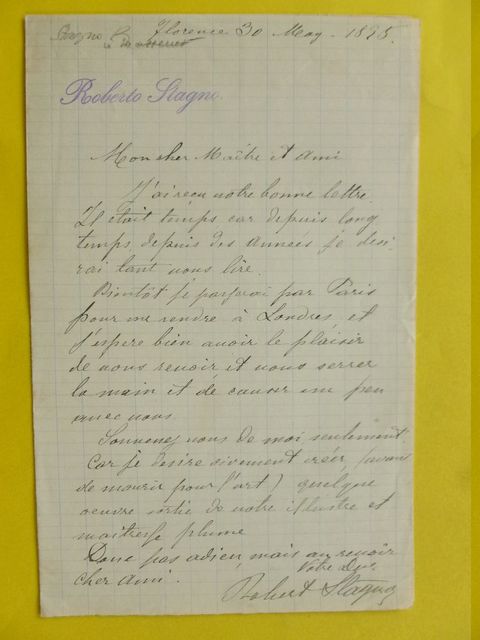 Stagno à Massenet Florence 30 May - 1895.
Roberto Stagno.
Mon cher Maître et Ami
J'ai reçu votre bonne lettre.
Il était temps car depuis long
temps depuis des années je desi
rai tant vous lire.
Bientôt je passerai par Paris
pour me rendre à Londres et
j'espere bien avoir le plaisir
de vous revoir et vous serrer
la main et de causer un peu
avec vous
Souvenez vous de moi seulement
car je desire vivement créer, (avant
de mourir pour l'art) quelque
oeuvre sortie de votre illustre et
maitresse plume
Donc pas adieu, mais au revoir
cher Ami. Votre
Robert Stagno